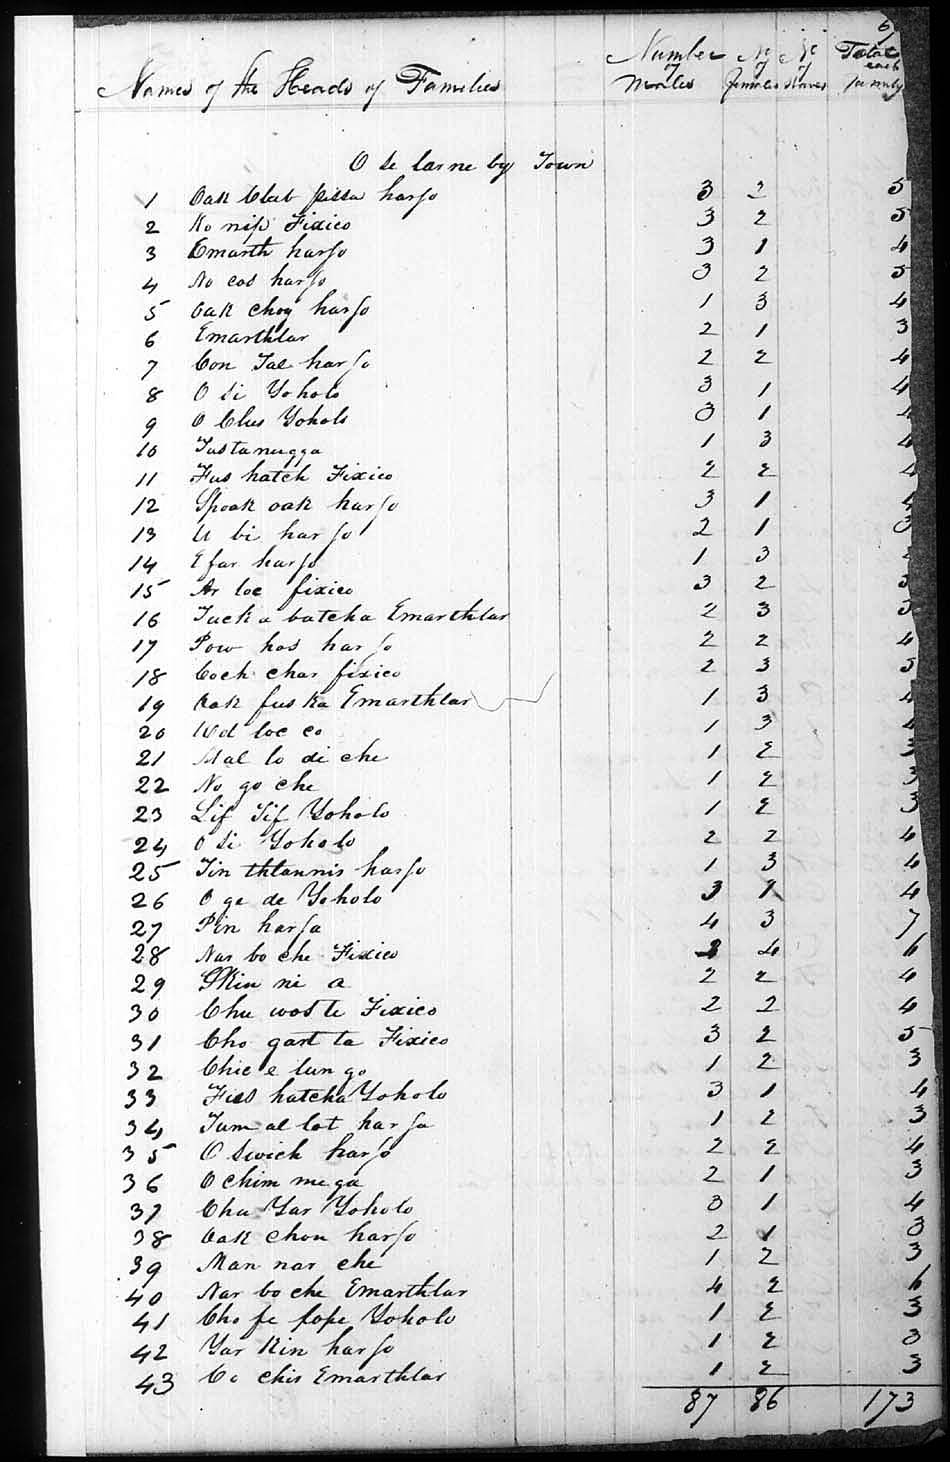 6
Names of the Heads of Families Number of Males No of females No of Slaves Total each family
O se lar ne by Town
1 Oak Club pissa harjo 3 2 5
2 Ko nip Fixico 3 2 5
3 Emarth harjo 3 1 4
4 No cos harjo 3 2 5
5 Oak choy harjo 1 3 4
6 Emarthlar 2 1 3
7 Con Tal harjo 2 2 4
8 O si Yoholo 3 1 4
9 O Clus Yoholo 3 1 4
10 Tustanugga 1 3 4
11 Fus hatch Fixico 2 2 4
12 Spoak oak harjo 3 1 4
13 U bi harjo 2 1 3
14 Efar harjo 1 3
15 Ar loc fixico 3 2 5
16 Tuck a batcha Emarthlar 2 3 5
17 Pow hos harjo 2 2 4
18 Coch char fixico 2 3 5
19 Oak fuska Emarthlar 1 3 4
20 Wol loc co 1 3 4
21 Mal lo di che 1 2 3
22 No go che 1 2 3
23 Lif Tif Yoholo 1 2 3
24 O si Yoholo 2 2 4
25 Tin thlannis harjo 1 3 4
26 O ge de Yoholo 3 1 4
27 Pin harja 4 3 7
28 Nar bo che Fixico 4 6
29 Skin ni a 2 2 4
30 Chu wos te Fixico 2 2 4
31 Cho gart ta Fixico 3 2 5
32 Chic e lun go 1 2 3
33 Fus hatcha Yoholo 3 1 4
34 Tum al lot harja 1 2 3
35 O swich harjo 2 2 4
36 O chim me ga 2 1 3
37 Cha Yar Yoholo 3 1 4
38 Oak chon harjo 2 1 3
39 Man nar che 1 2 3
40 Nar bo che Emarthlar 4 2 6
41 Cho fe fope Yoholo 1 2 3
42 Yar Kin harjo 1 2 3
43 Co chis Emarthlar 1 2 3
87 86 173